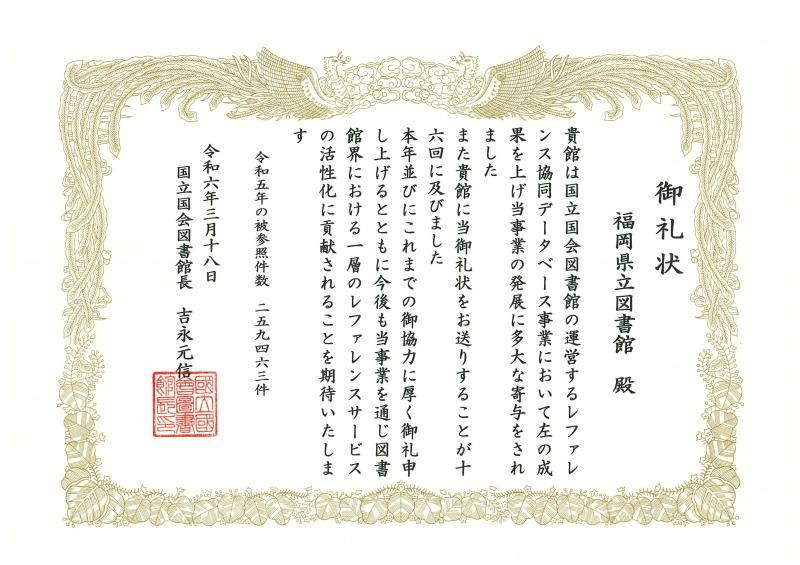 御礼状
福岡県立図書館　殿
貴館は国立国会図書館の運営するレファレ
ンス協同データベース事業において左の成
果を上げ当事業の発展に多大な寄与をされ
ました
また貴館に当御礼状をお送りすることが十
六回に及びました
本年並びにこれまでの御協力に厚く御礼申
し上げるとともに今後も当事業を通じ図書
館界における一層のレファレンスサービス
の活性化に貢献されることを期待いたしま
す
令和五年の被参照件数　二五九四六三件
令和六年三月十八日
国立国会図書館長　吉永元信
國立國
會圖書
館長印